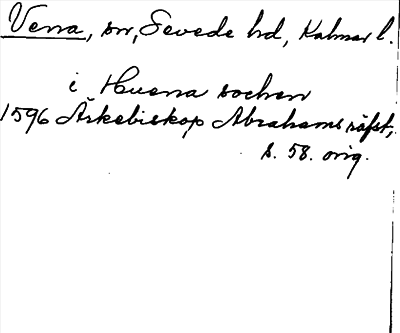 Vena, sn, Sevede hd, Kalmar l.
i Huena sochen
1596 Ärkebiskop Abrahams räfst,
s. 58. orig.